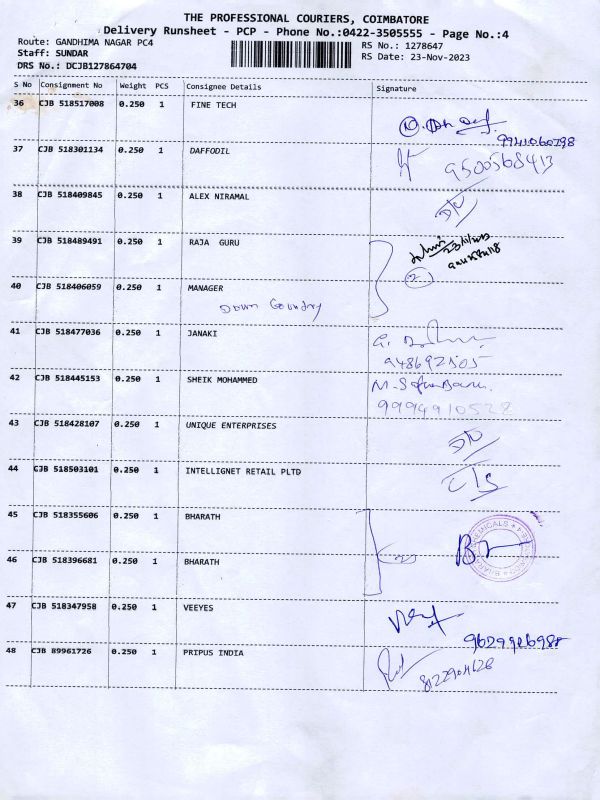 THE PROFESSIONAL COURIERS, COIMBATORE
Delivery Runsheet - PCP - Phone No.:0422-3505555 - Page No.:4
Route: GANDHIMA NAGAR PC4
RS No.: 1278647
Staff: SUNDAR
RS Date: 23-Nov-2023
DRS No.: DCJB127864704
S No Consignment No Weight PCS Consignee Details Signature
36 CJB 518517008 0.250 1 FINE TECH
37 CJB 518301134 0.250 1 DAFFODIL
9500568413
38 CJB 518409845 0.250 1 ALEX NIRAMAL
D/N
39 CJB 518489491 0.250 1 RAJA GURU
23/11/2023
40 CJB 518406059 0.250 1 MANAGER
2
41 CJB 518477036 0.250 1 JANAKI
948692505
42 CJB 518445153 0.250 1 SHEIK MOHAMMED
9994910528
43 CJB 518428107 0.250 1 UNIQUE ENTERPRISES
D/N
44 CJB 518503101 0.250 1 INTELLIGNET RETAIL PLTD
C/S
45 CJB 518355606 0.250 1 BHARATH
46 CJB 518396681 0.250 1 BHARATH
CHEMICALS
47 CJB 518347958 0.250 1 VEEYES
48 CJB 89961726 0.250 1 PRIPUS INDIA